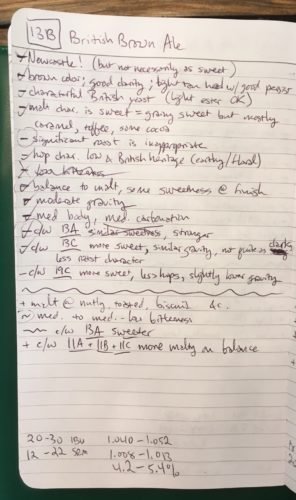 13B British Brown Ale
✓ Newcastle! (but not necessarily as sweet)
✓ brown color; good clarity; light tan head w/ good persist
✓ characterful British yeast (light ester OK)
✓ malt char. is sweet = grainy sweet but mostly
caramel, toffee, some cocoa
– significant roast is inappropriate
✓ hop char. low & British heritage (earthy/floral)
✓ low bitterness
✓ balance to malt, some sweetness @ finish
✓ moderate gravity
✓ med body, med. carbonation
✓ c/w BA similar sweetness, stronger
✓ c/w BC more sweet, similar gravity, not quite as dark,
less roast character
– c/w 19C more sweet, less hops, slightly lower gravity
+ malt @ nutty, toasted, biscuit &c.
~ med. to med.-low bitterness
c/w 13A sweeter
+ c/w 11A + 11B + 11C more malty in balance
20-30 IBU 1.040-1.052
12-22 SRM 1.008-1.013
4.2-5.4%